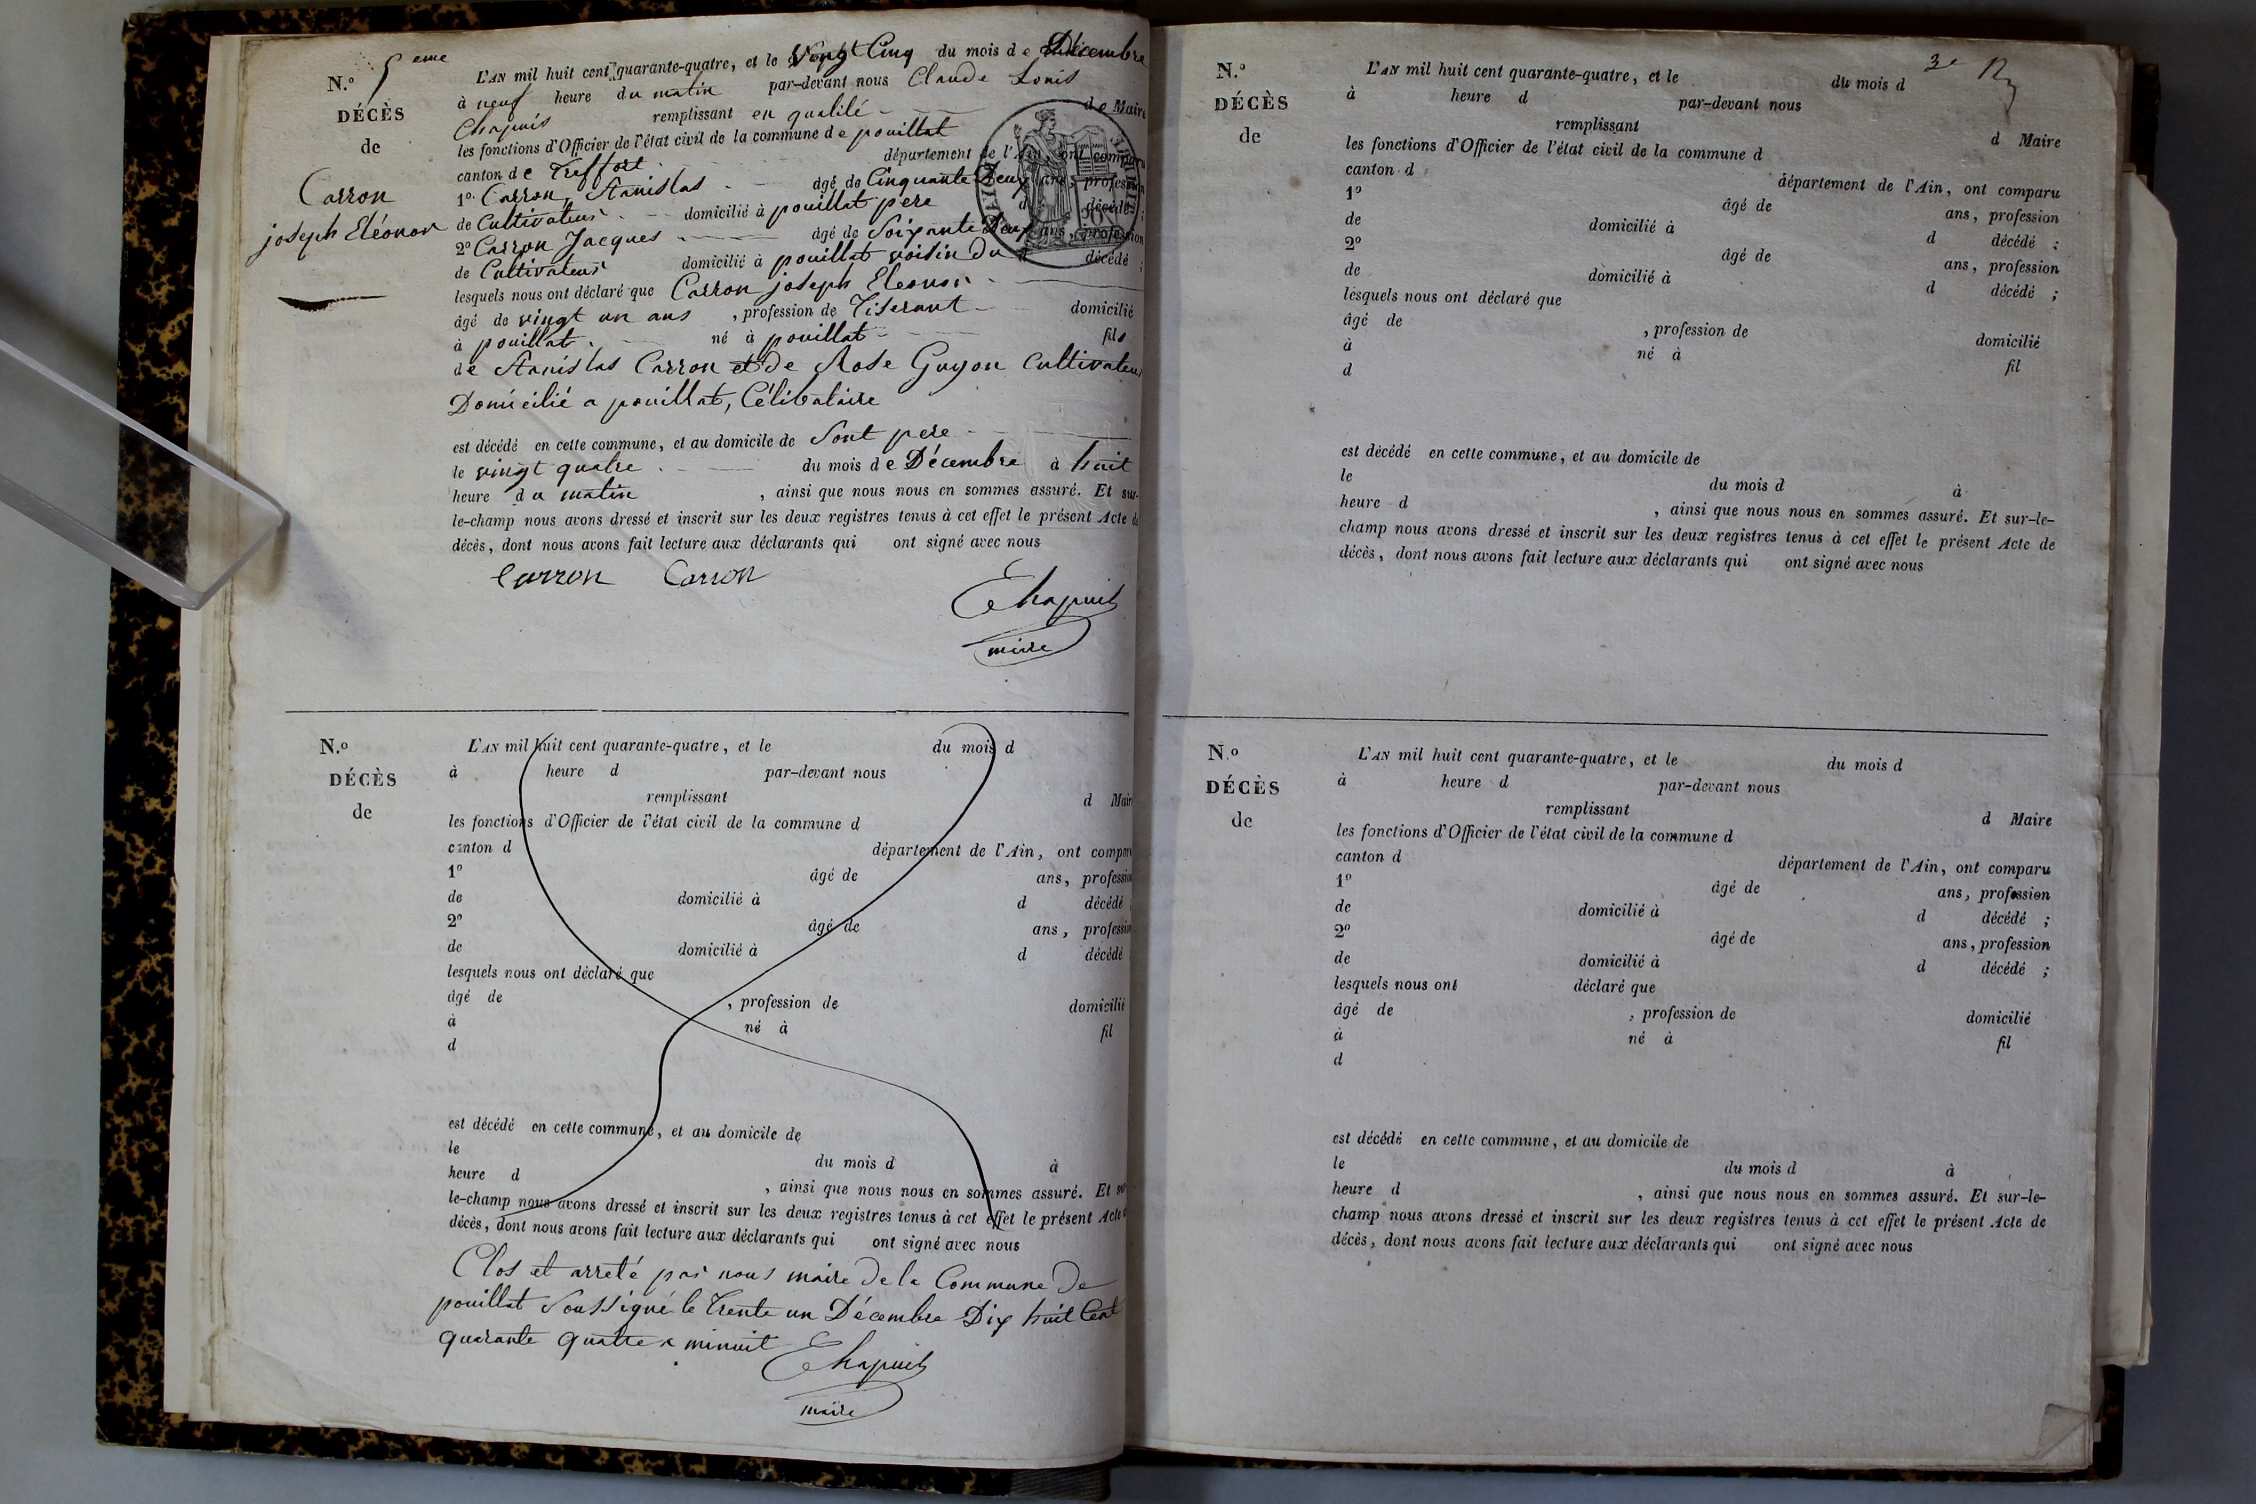 N.º 5 eme
DÉCÈS
de
Carron
joseph Eléonor
L'AN mil huit cent quarante-quatre, et le Vingt Cinq du mois de Décembre
à neuf heure du matin par-devant nous Claude Louis
Chapuis remplissant en qualité de Maire
les fonctions d'Officier de l'état civil de la commune de pouillat
canton de Treffort département de l'Ain, ont comparu
1º Carron Stanislas âgé de Cinquante Deux ans, profession
de Cultivateur domicilié à pouillat pere d décédé ;
2º Carron Jacques âgé de Soixante Deux ans, profession
de Cultivateur domicilié à pouillat voisin du décédé ;
lesquels nous ont déclaré que Carron joseph Eleonor
âgé de vingt un ans , profession de Tiserant domicilié
à pouillat né à pouillat fils
de Stanislas Carron et de Rose Guyon Cultivateur
Domicilié a pouillat, Célibataire
est décédé en cette commune, et au domicile de Sont pere
le vingt quatre du mois de Décembre à huit
heure du matin , ainsi que nous nous en sommes assuré. Et sur-
le-champ nous avons dressé et inscrit sur les deux registres tenus à cet effet le présent Acte de
décès, dont nous avons fait lecture aux déclarants qui ont signé avec nous
Carron Carron
Chapuis
maire
N.º
DÉCÈS
de
L'AN mil huit cent quarante-quatre, et le du mois d
à heure d par-devant nous
remplissant d Maire
les fonctions d'Officier de l'état civil de la commune d
canton d département de l'Ain, ont comparu
1º âgé de ans, profession
de domicilié à d décédé
2º âgé de ans, profession
de domicilié à d décédé
lesquels nous ont déclaré que
âgé de , profession de domicilié
à né à fil
d
est décédé en cette commune, et au domicile de
le du mois d à
heure d , ainsi que nous nous en sommes assuré. Et sur
le-champ nous avons dressé et inscrit sur les deux registres tenus à cet effet le présent Acte
décès, dont nous avons fait lecture aux déclarants qui ont signé avec nous
Clos et arreté par nous maire de la Commune De
pouillat Soussigné le Trente un Décembre Dix huit Cent
quarante quatre a minuit Chapuis
maire
3e
N.º
DÉCÈS
de
L'AN mil huit cent quarante-quatre, et le du mois d
à heure d par-devant nous
remplissant d Maire
les fonctions d'Officier de l'état civil de la commune d
canton d département de l'Ain, ont comparu
1º âgé de ans, profession
de domicilié à d décédé ;
2º âgé de ans, profession
de domicilié à d décédé ;
lesquels nous ont déclaré que
âgé de , profession de domicilié
à né à fil
d
est décédé en cette commune, et au domicile de
le du mois d à
heure d , ainsi que nous nous en sommes assuré. Et sur-le-
champ nous avons dressé et inscrit sur les deux registres tenus à cet effet le présent Acte de
décès, dont nous avons fait lecture aux déclarants qui ont signé avec nous
N.º
DÉCÈS
de
L'AN mil huit cent quarante-quatre, et le du mois d
à heure d par-devant nous
remplissant d Maire
les fonctions d'Officier de l'état civil de la commune d
canton d département de l'Ain, ont comparu
1º âgé de ans, profession
de domicilié à d décédé ;
2º âgé de ans, profession
de domicilié à d décédé ;
lesquels nous ont déclaré que
âgé de , profession de domicilié
à né à fil
d
est décédé en cette commune, et au domicile de
le du mois d à
heure d , ainsi que nous nous en sommes assuré. Et sur-le-
champ nous avons dressé et inscrit sur les deux registres tenus à cet effet le présent Acte de
décès, dont nous avons fait lecture aux déclarants qui ont signé avec nous